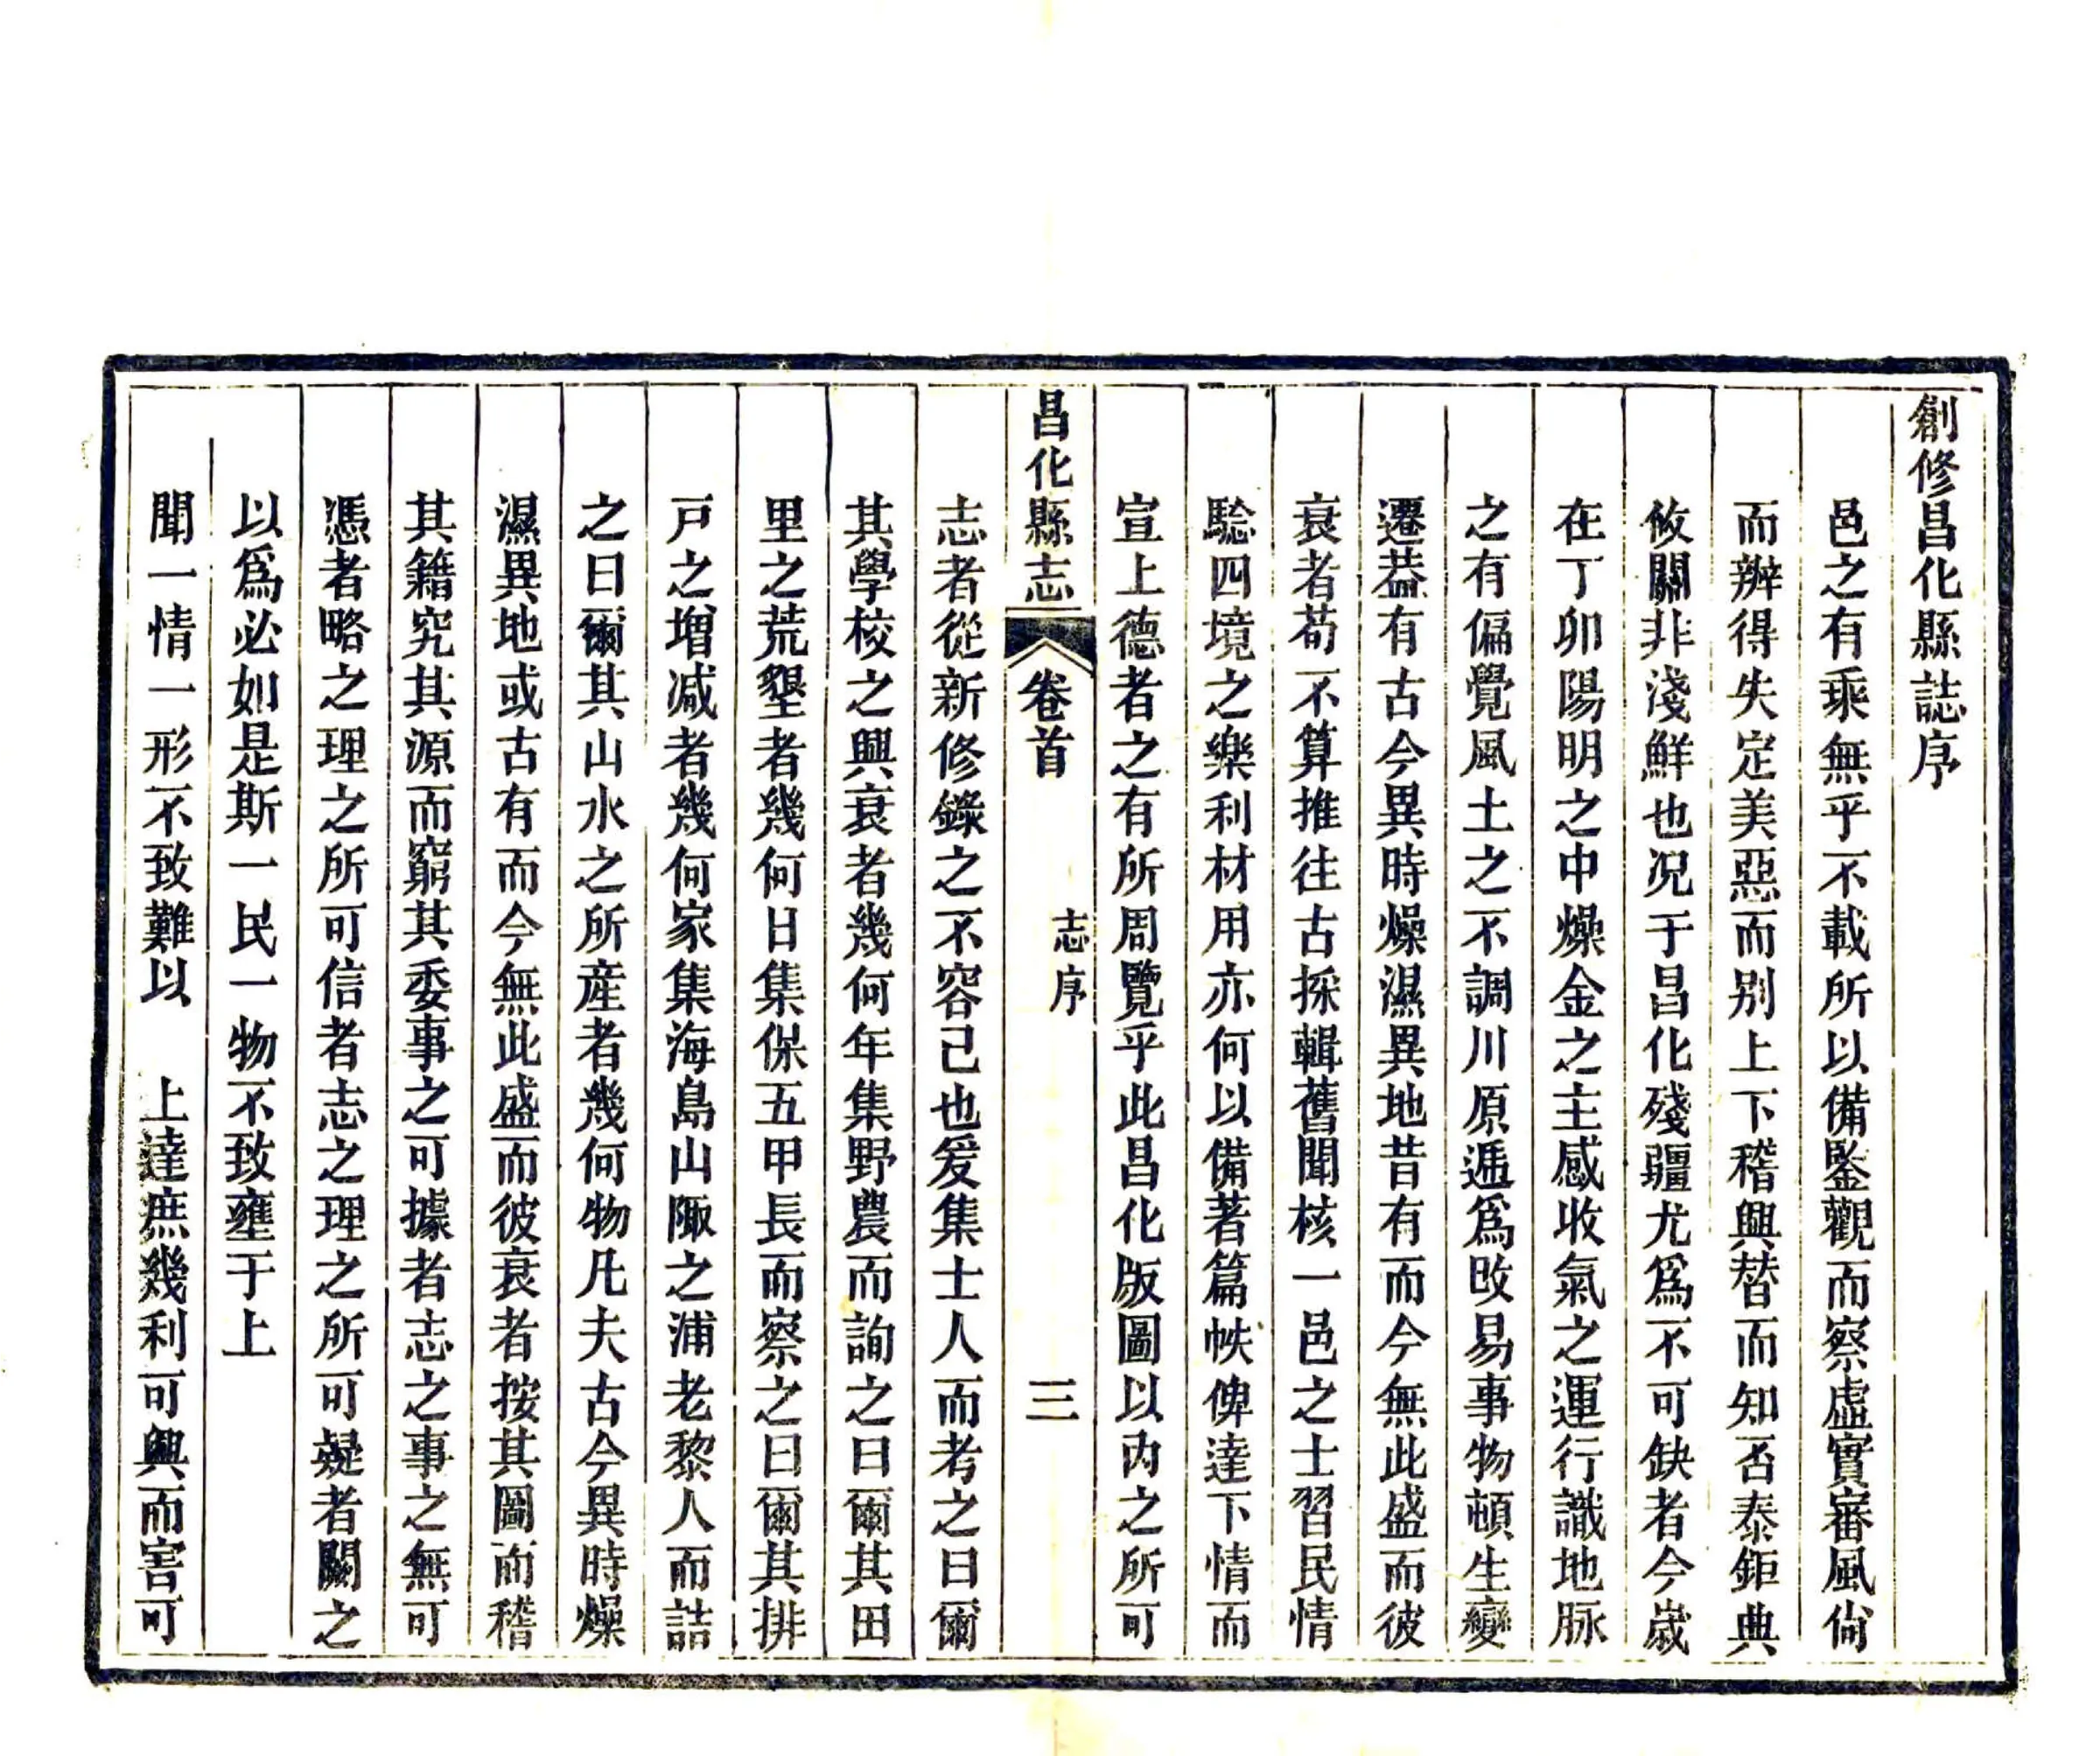 創修昌化縣誌序
邑之有乘無乎不載所以備鍳觀而察虛實審風尙
而辨得失定美惡而别上下稽興替而知否泰鉅典
攸關非淺鮮也况于昌化殘疆尤爲不可缺者今歲
在丁卯陽明之中燥金之主感收氣之運行識地脉
之有偏覺風土之不調川原遞爲攺易事物頓生變
遷葢有古今異時燥濕異地昔有而今無此盛而彼
衰者苟不算推往古採輯舊聞核一邑之士習民情
騐四境之樂利材用亦何以備著篇帙俾達下情而
宣上德者之有所周覽乎此昌化版圖以内之所可
昌化縣志
卷首
志序
三
志者從新修錄之不容己也爰集士人而考之曰爾
其學校之興衰者幾何年集野農而詢之曰爾其田
里之荒墾者幾何日集保五甲長而察之曰爾其排
戸之增减者幾何家集海島山陬之浦老黎人而詰
之曰爾其山水之所産者幾何物凡夫古今異時燥
濕異地或古有而今無此盛而彼衰者按其圖而稽
其籍究其源而窮其委事之可據者志之事之無可
憑者略之理之所可信者志之理之所可疑者闕之
以爲必如是斯一民一物不致壅于上
聞一情一形不致難以　上達庶幾利可興而害可